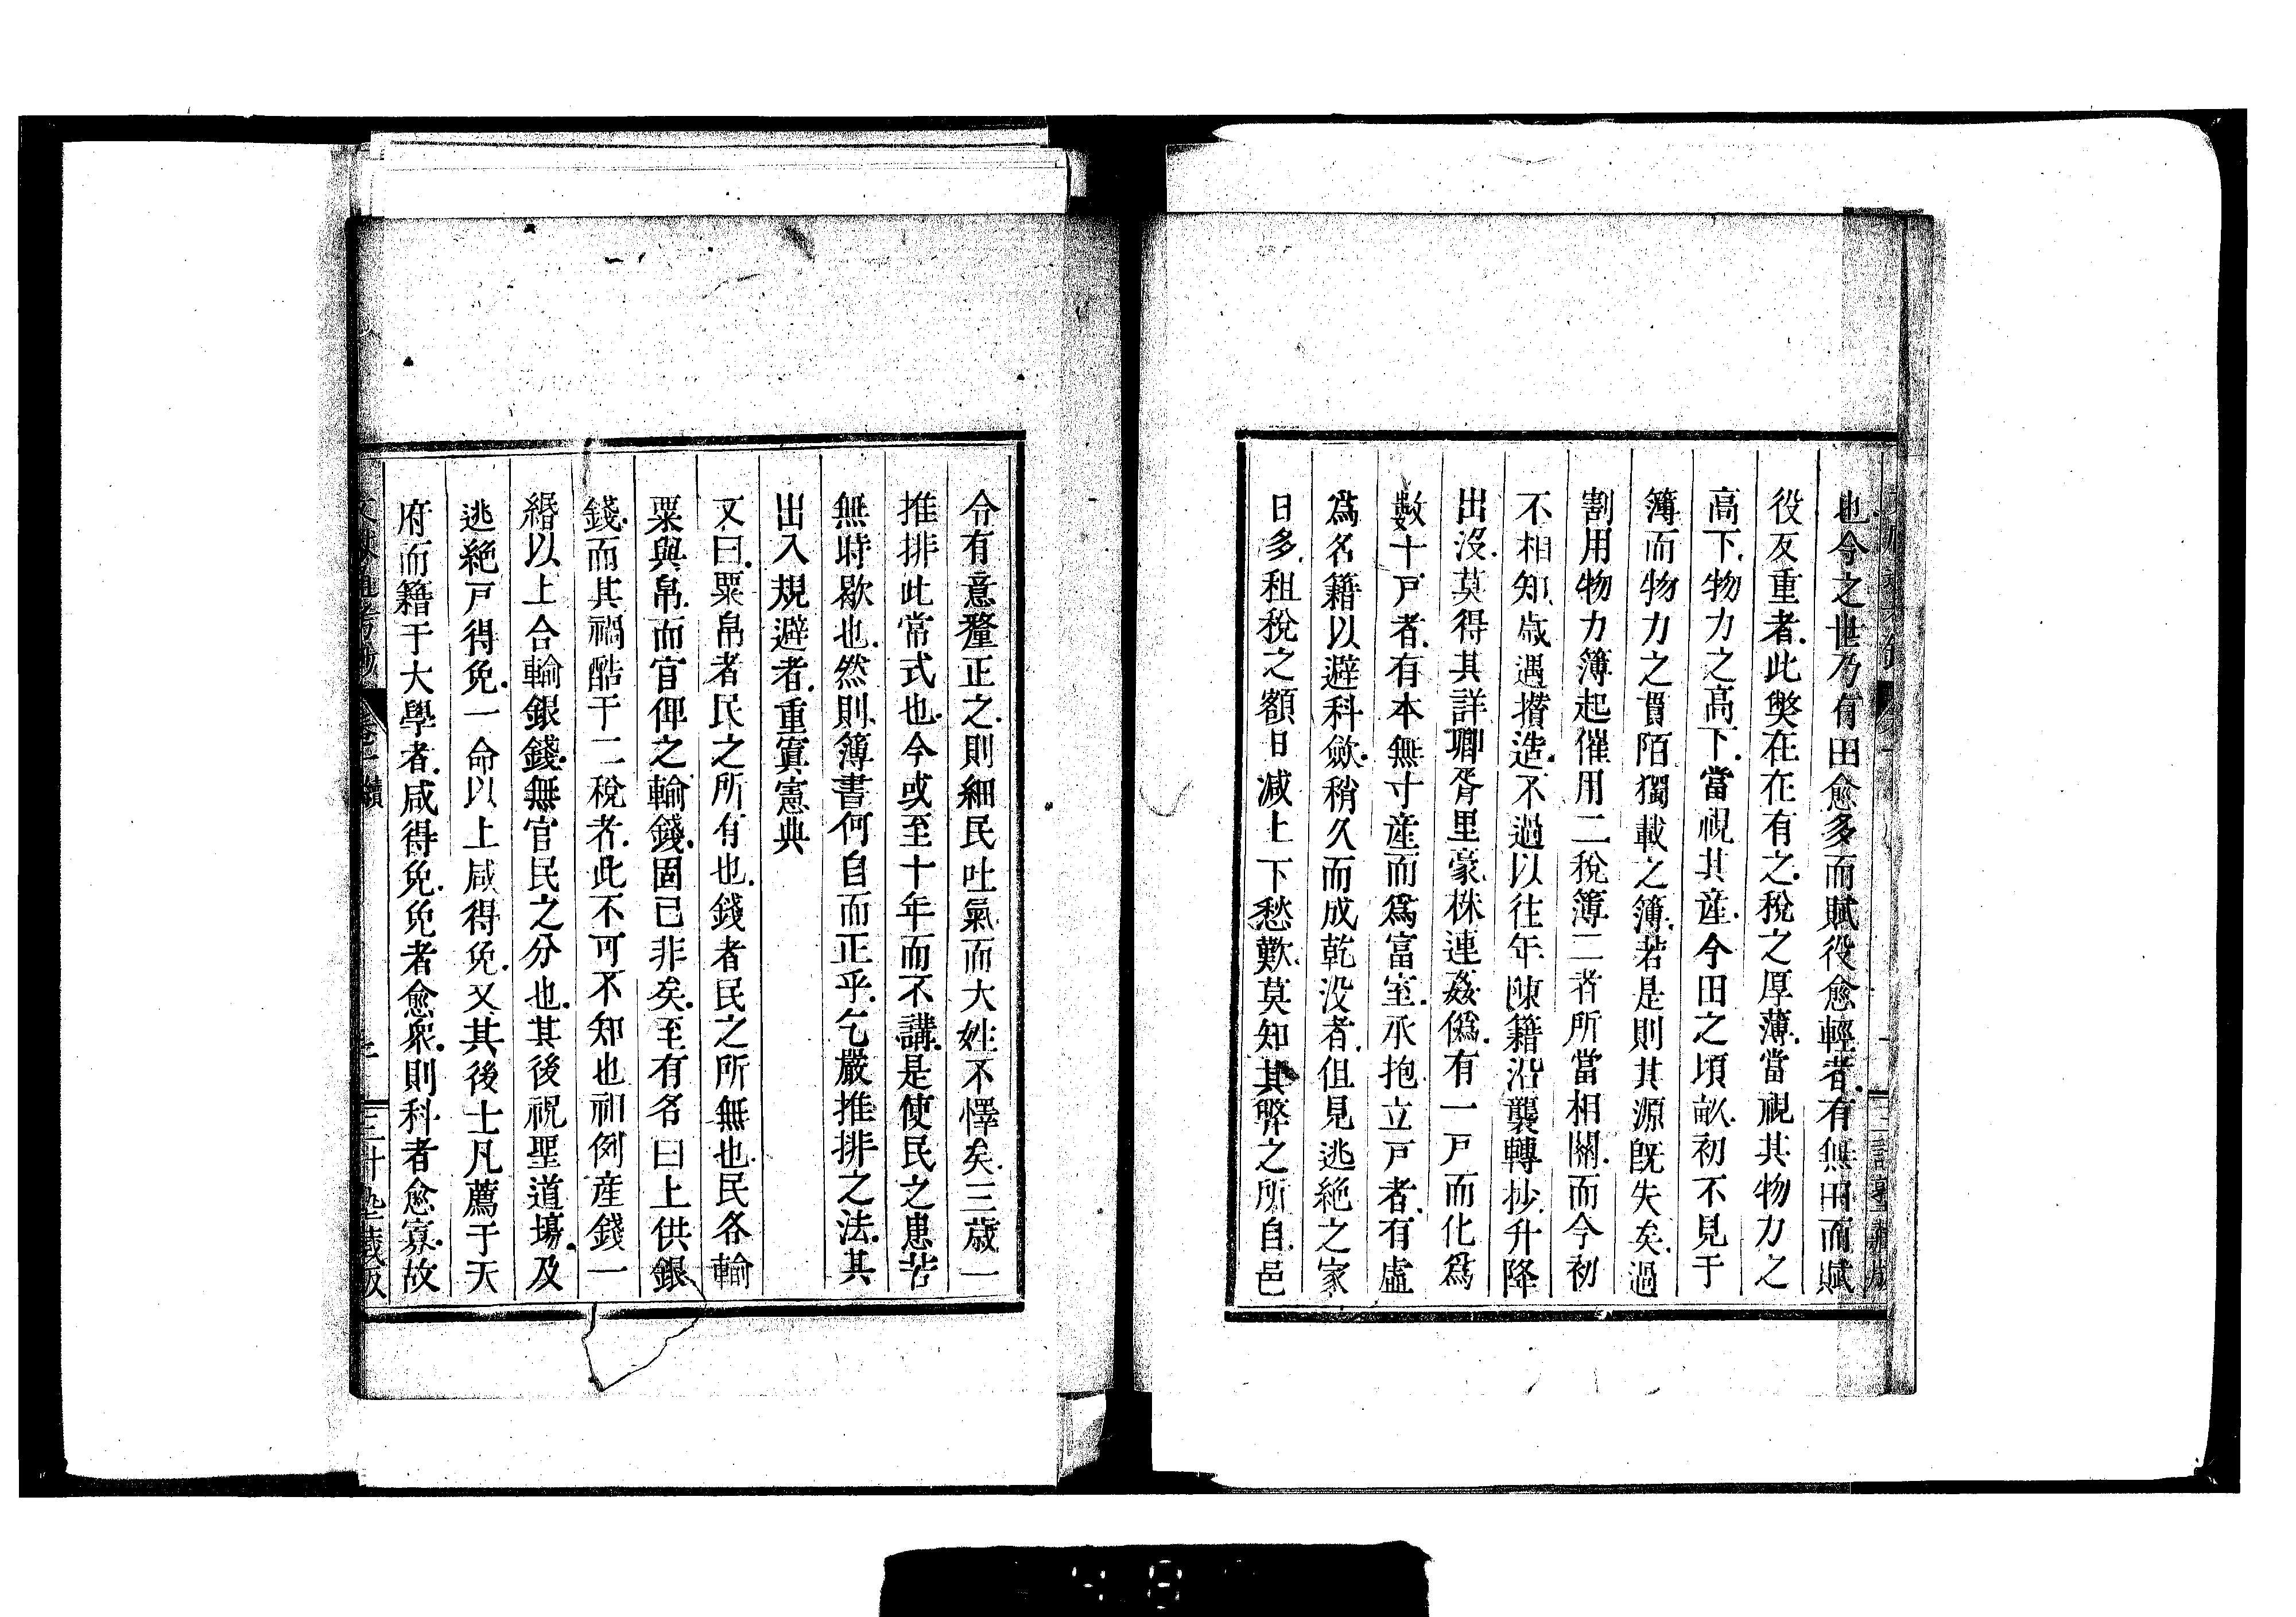 也今之世乃有田愈多而賦役愈輕者有無田而賦
役反重者此獘在在有之稅之厚薄當視其物力之
高下物力之高下當視其產今田之頃畝初不見于
簿而物力之貫陌獨載之簿若是則其源既失矣過
割用物力簿起催用二稅簿二者所當相關而今初
不相知歲遇攢造不過以往年陳籍沿襲轉抄升降
出沒莫得其詳鄉胥里豪株連姦僞有一戸而化爲
數十戸者有本無寸產而爲富室承抱立戸者有虛
爲名籍以避科歛稍久而成乾没者但見逃絕之家
日多租稅之額日減上下愁歎莫知其弊之所自邑
令有意釐正之則細民吐氣而大姓不懌矣三歲一
推排此常式也今或至十年而不講是使民之患苦
無時歇也然則簿書何自而正乎乞嚴推排之法其
出入規避者重寘憲典
又曰粟帛者民之所有也錢者民之所無也民各輸
粟與帛而官俾之輸錢固已非矣至有名曰上供銀
錢而其禍酷于二稅者此不可不知也初例產錢一
緡以上合輸銀錢無官民之分也其後祝聖道場及
逃絕戸得免一命以上咸得免又其後士凡薦于天
府而籍于大學者咸得免免者愈衆則科者愈寡故